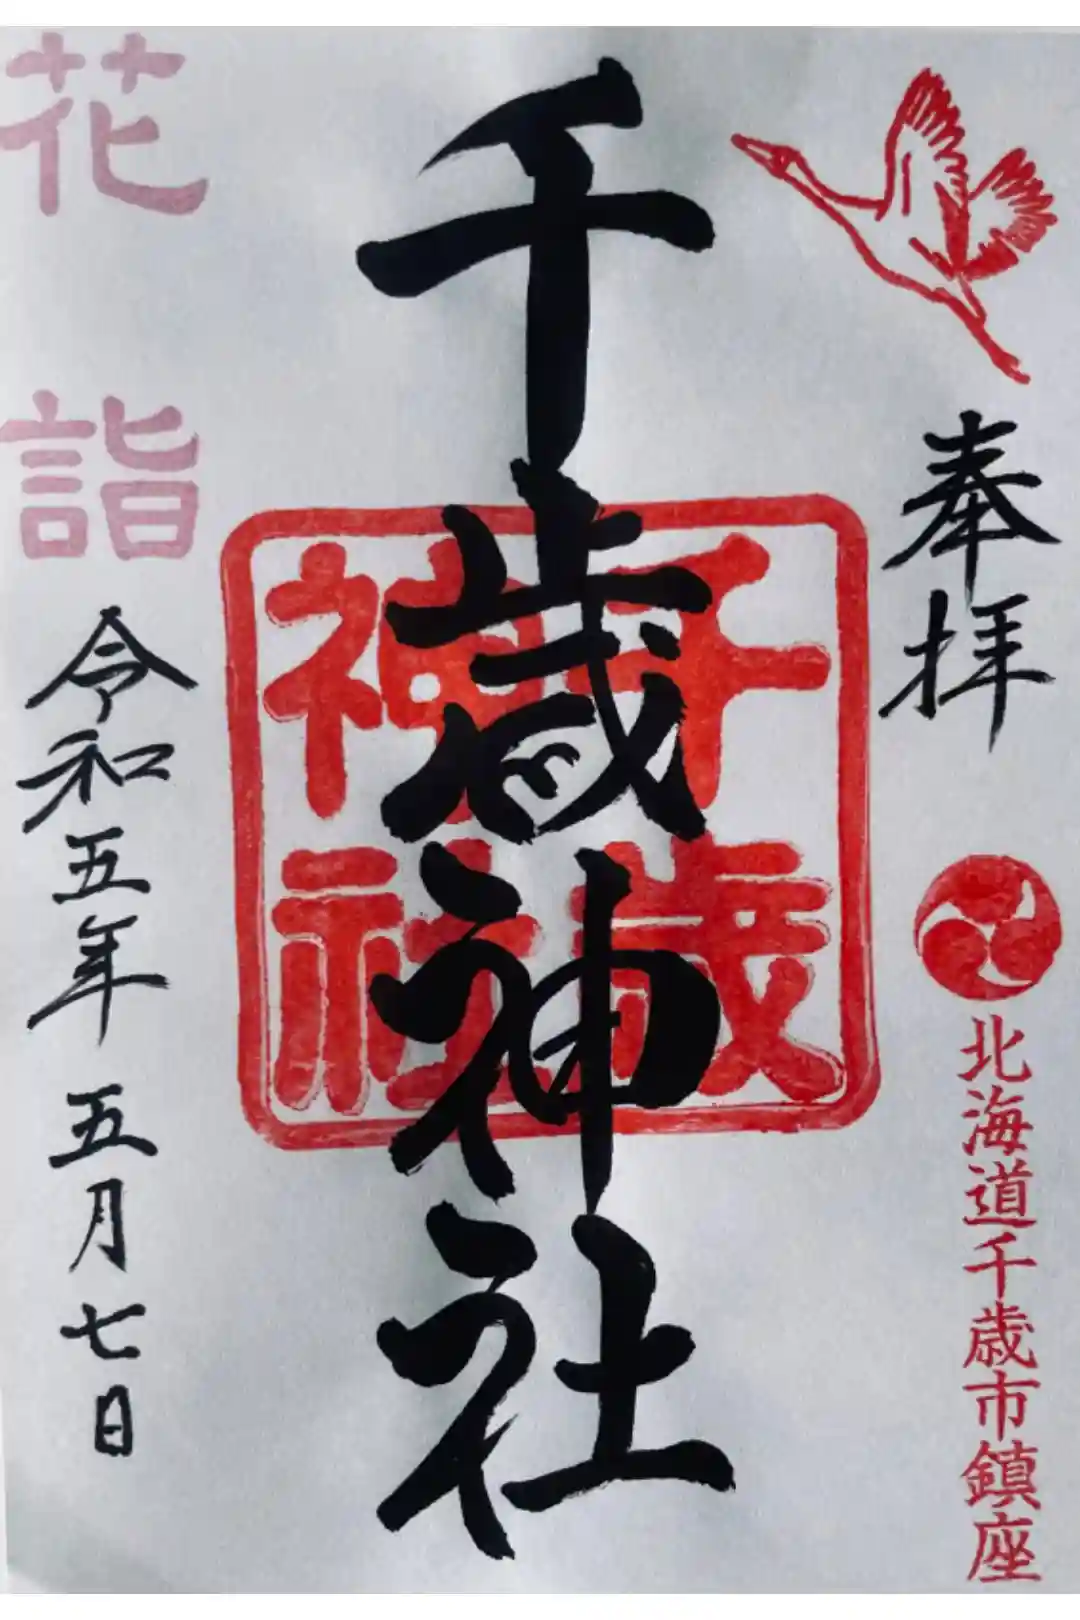 奉拝
北海道千歳市鎮座
千歳神社
千歳
神社
花詣
令和五年 五月七日